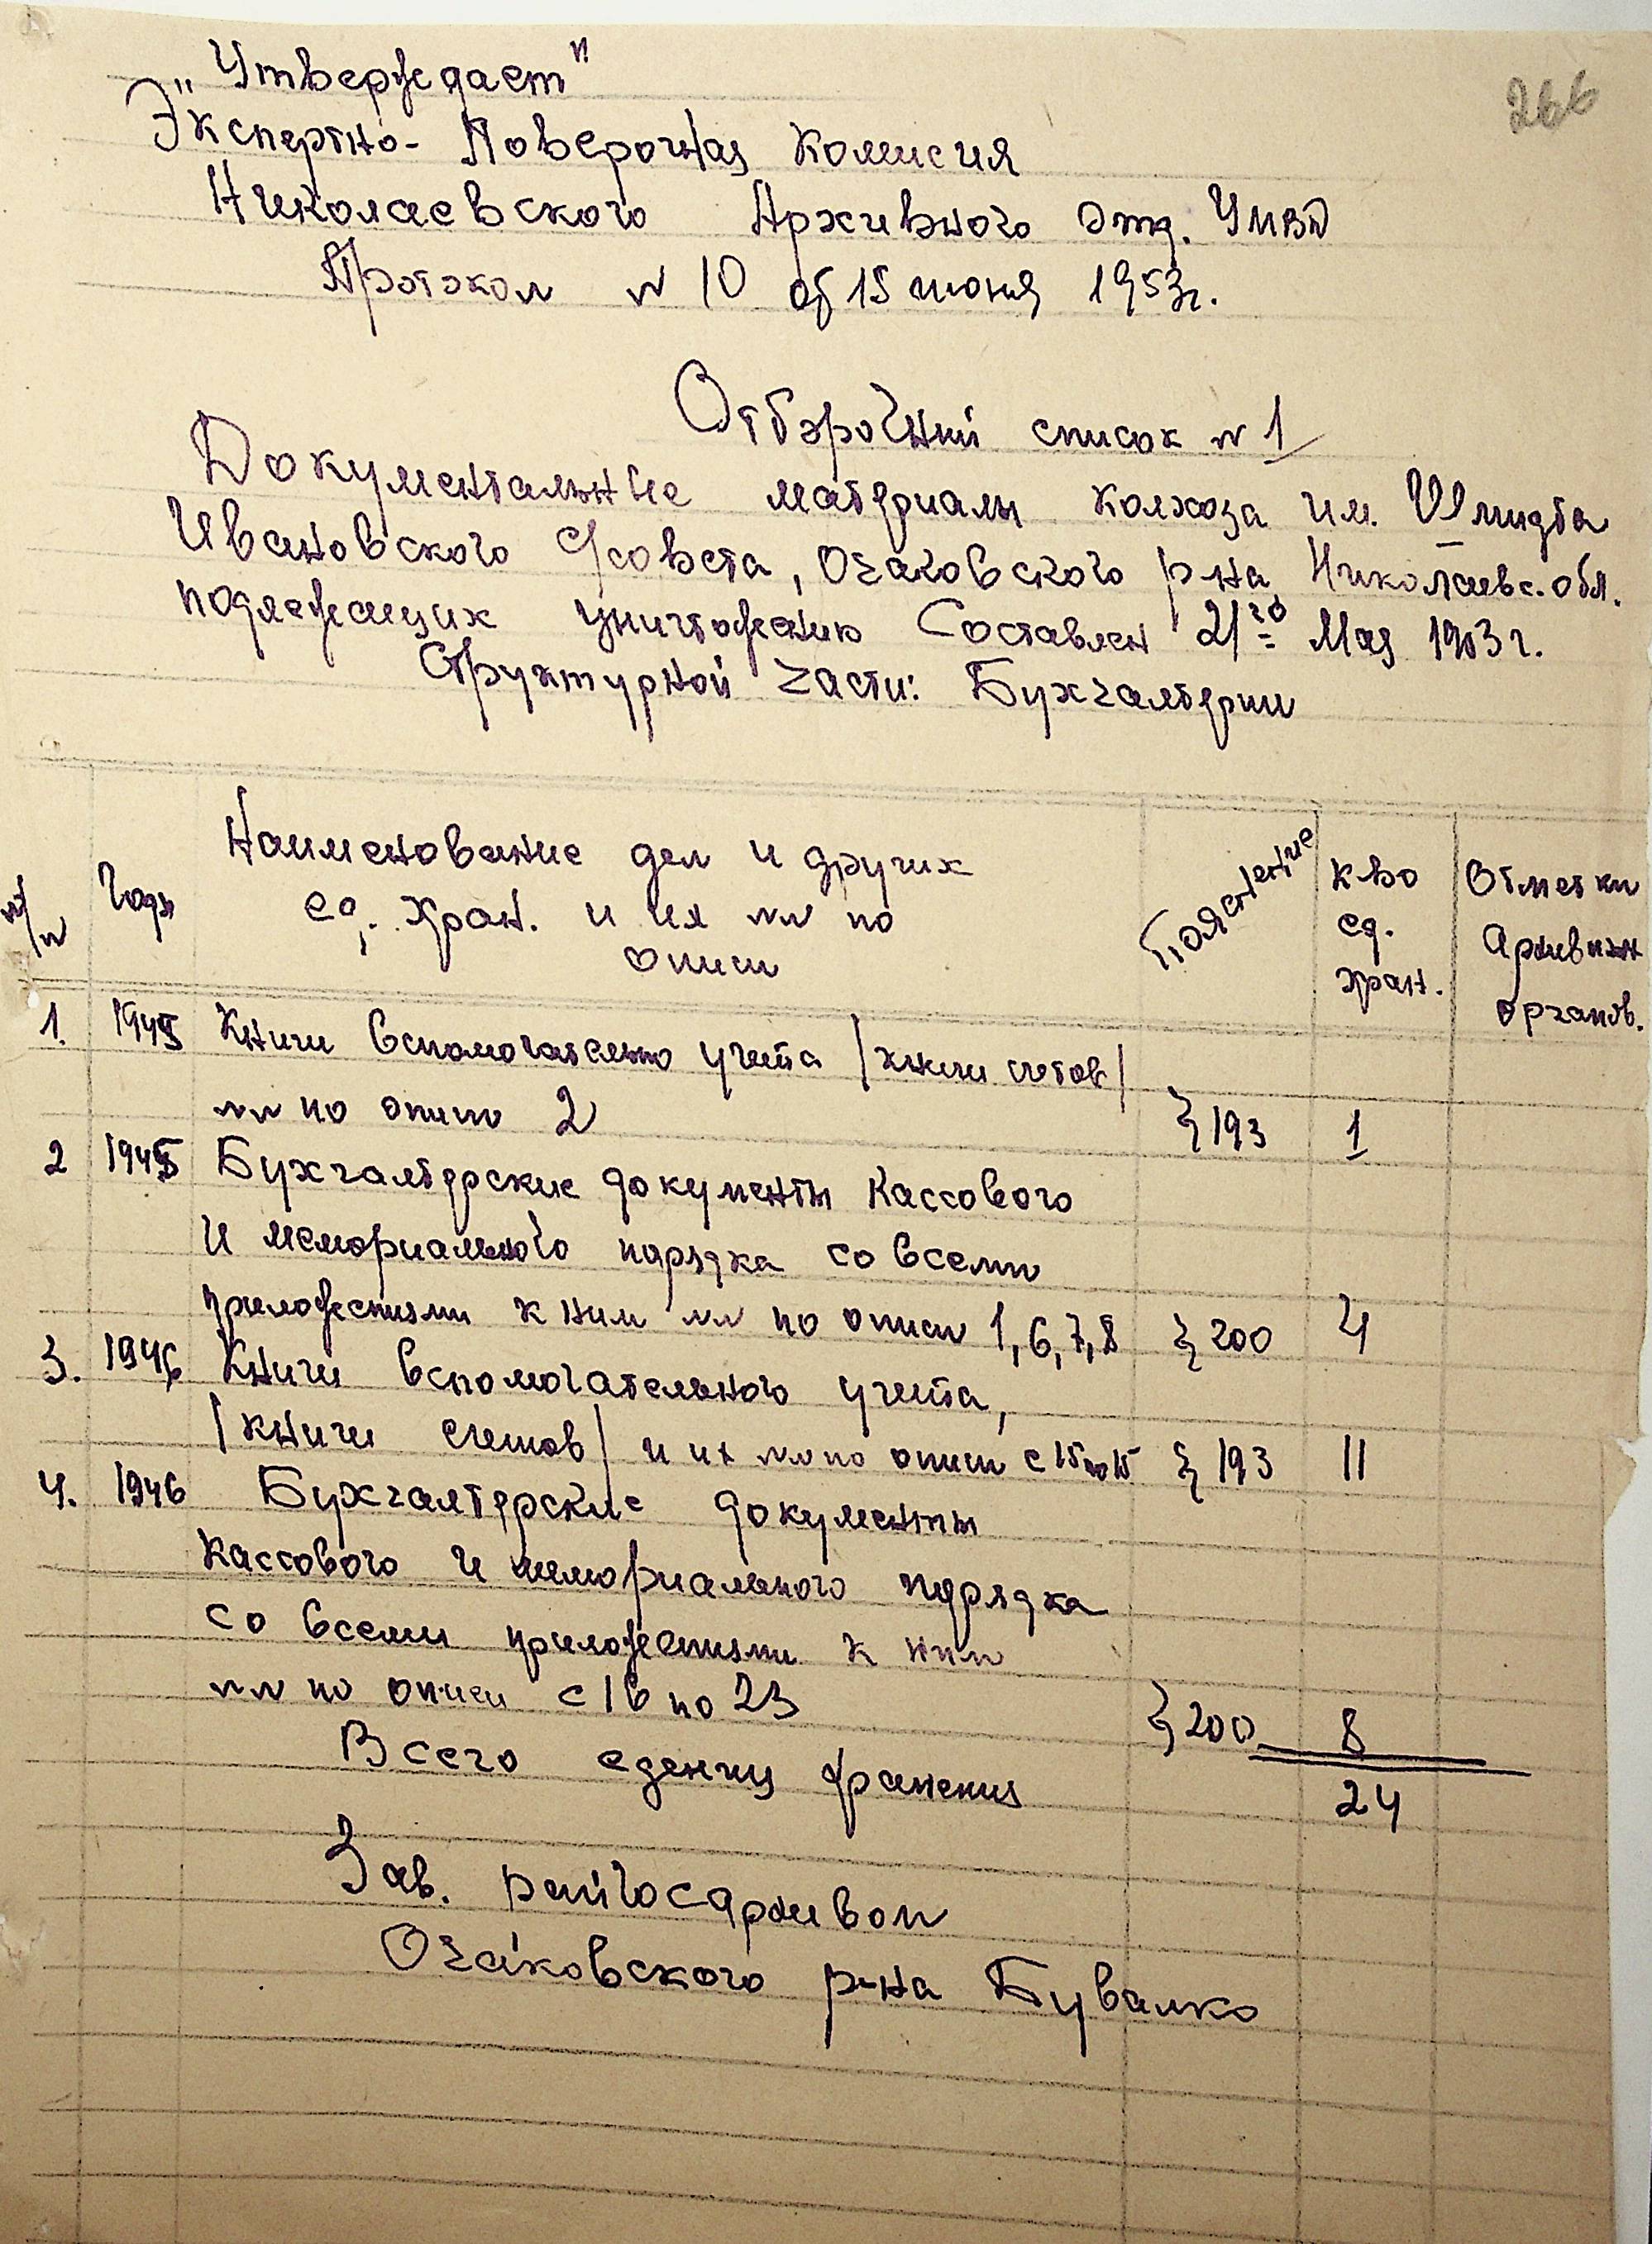 266
„Утверждает"
Экспертно-Поверочная Комисия
Николаевского Архивного Отд. УМВД
Протокол № 10 от 15 июня 1953г.
Отборочний список № 1
Документальные материалы колхоза им. Шмидта
Ивановского С/совета, Очаковского р-на, Николаевс. обл.
подлежащих уничтожению Составлен 21го Мая 1953 г.
Структурной части: Бухгалтерии
№/№ Годы Наименование дел и других ед. хран. и их №№ по описи Пояснение К-во ед. хран. Отметки Архивных органов.
1. 1945 Книги вспомогательно учета /книги счетов/
№№ по описи 2 } 193 1
2 1945 Бухгалтерские документы Кассового
и мемориального порядка со всеми
приложениями к ним №№ по описи 1, 6, 7, 8 } 200 4
3. 1946 Книги вспомогательного учета,
/книги счетов/ и их №№ по описи с 15 по 15 } 193 11
4. 1946 Бухгалтерские документы
Кассового и мемориального порядка
со всеми приложениями к ним
№№ по описи с 16 по 23 } 200 8
Всего едениц хранения 24
Зав. райгосархивом
Очаковского р-на Бувалко